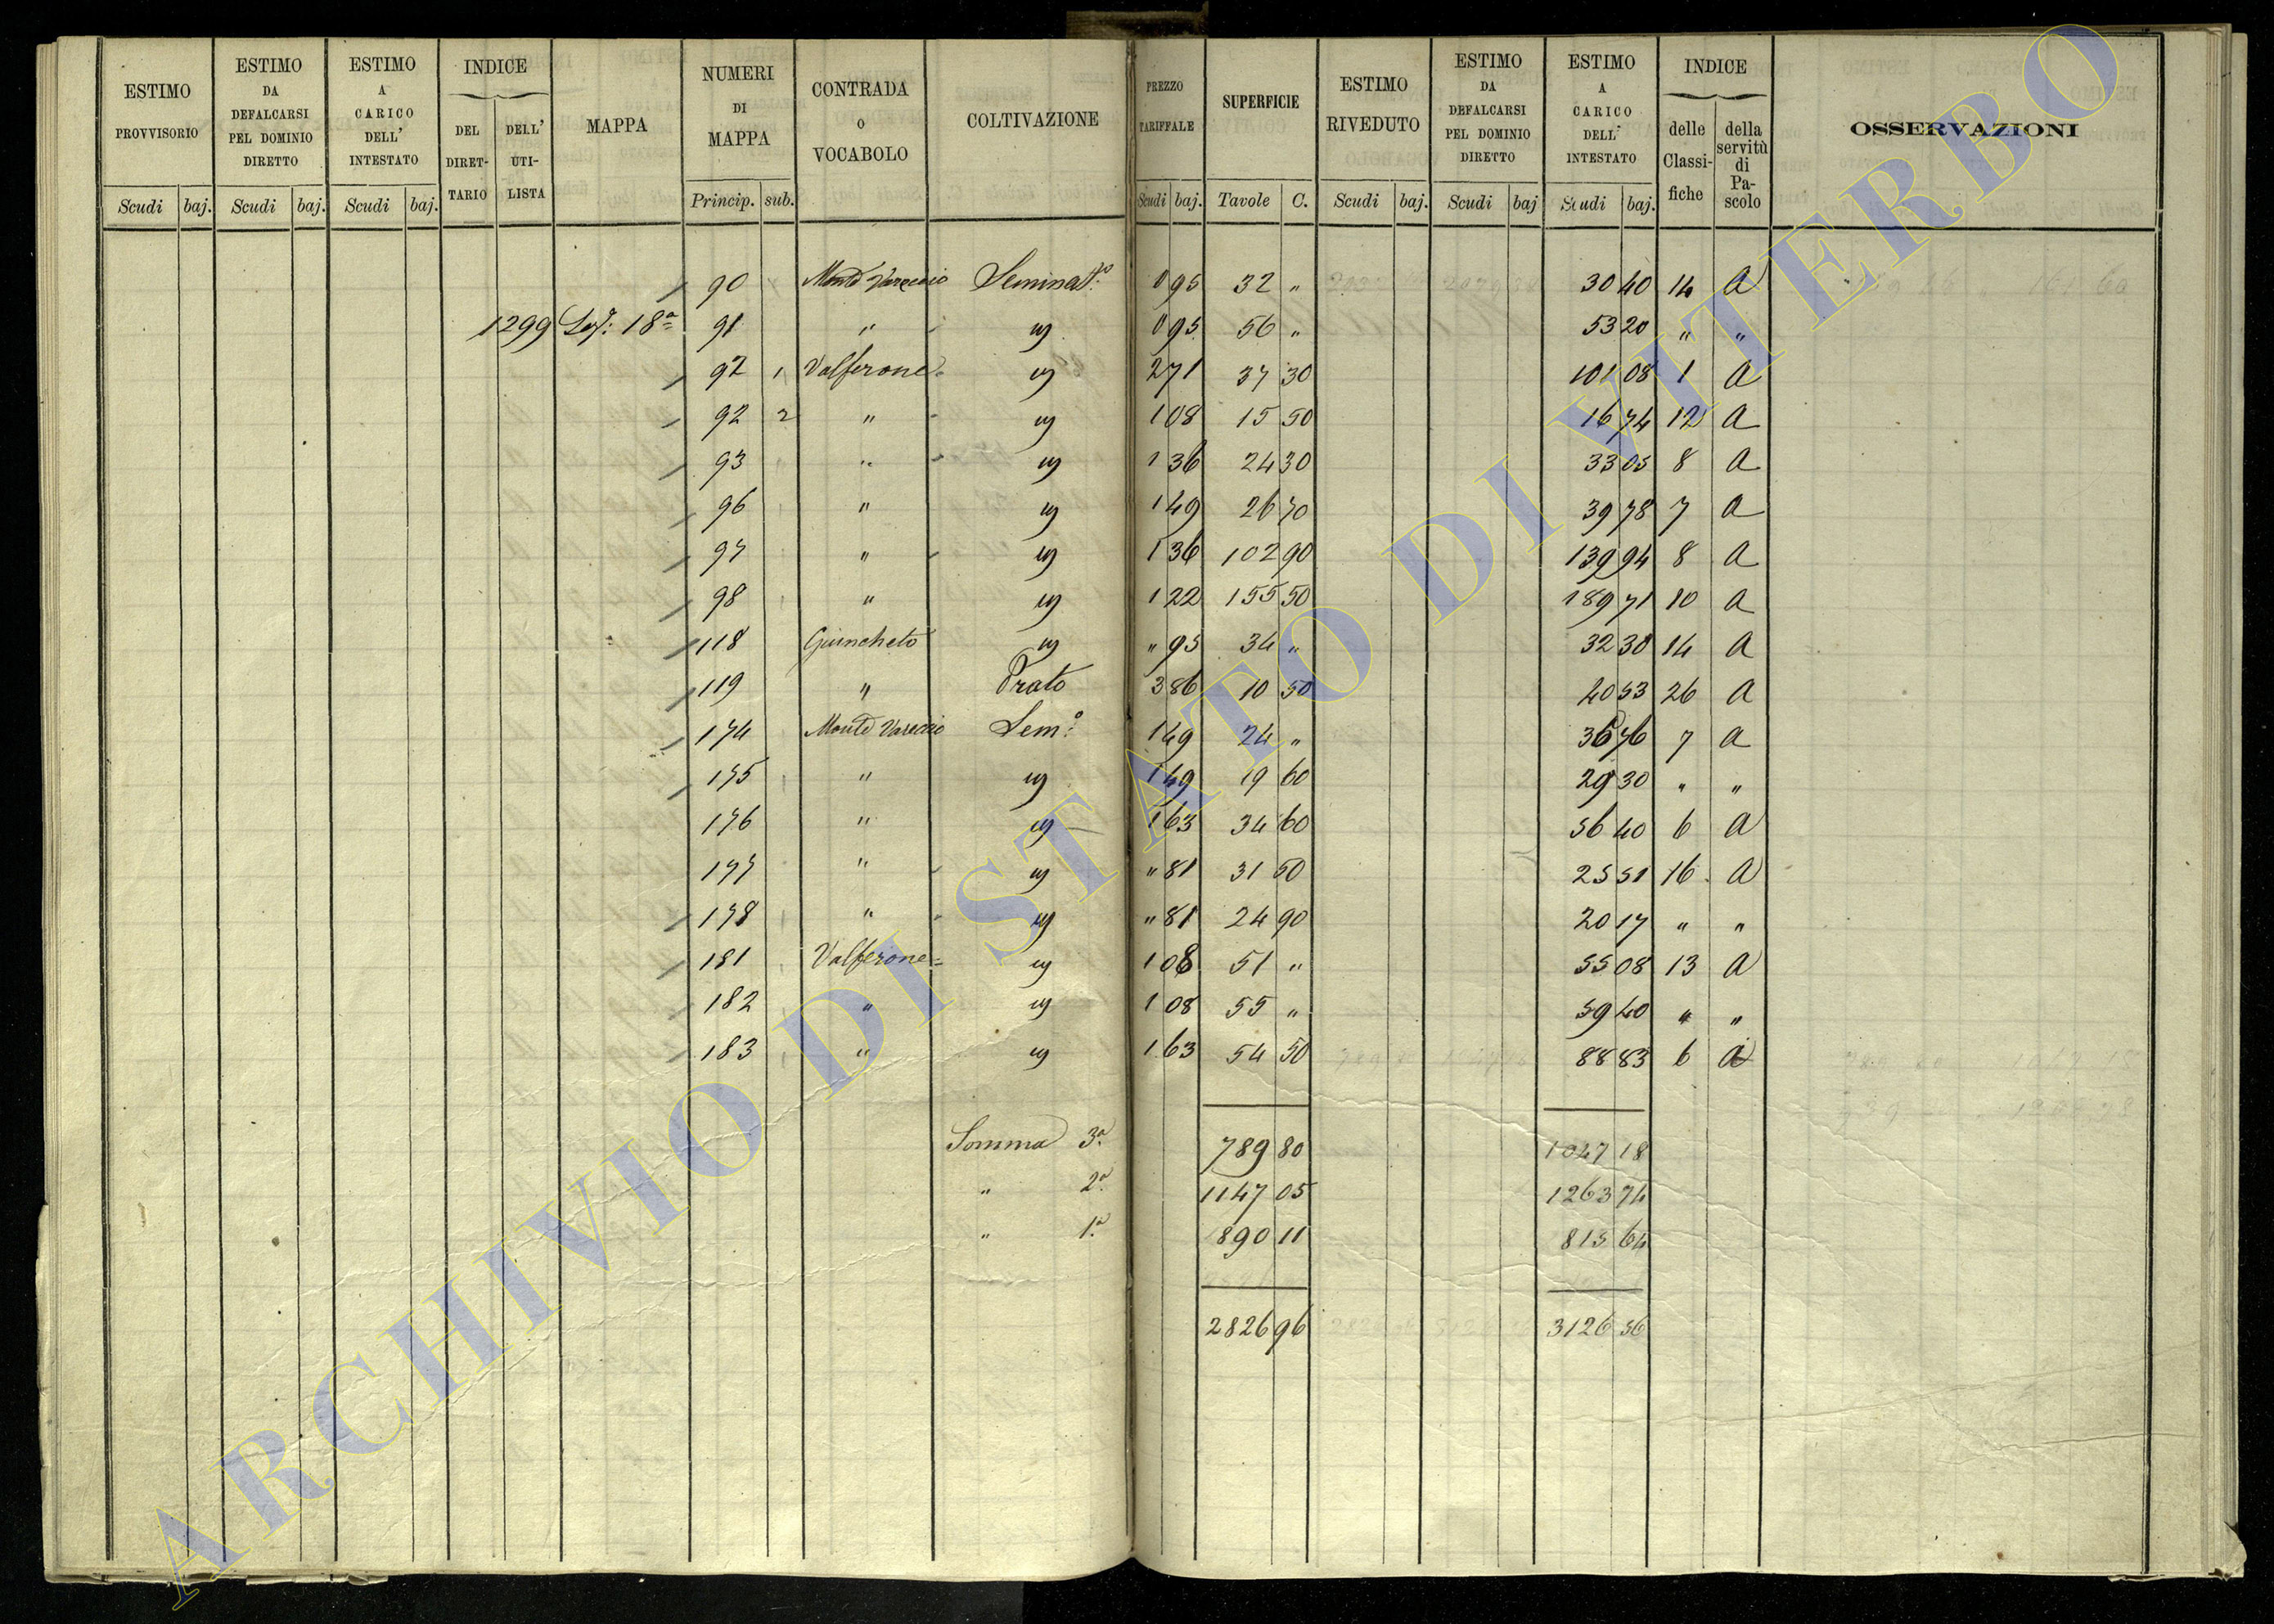 ESTIMO PROVVISORIO Scudi baj.
ESTIMO DA DEFALCARSI PEL DOMINIO DIRETTO Scudi baj.
ESTIMO A CARICO DELL' INTESTATO Scudi baj.
INDICE DEL DIRET-TARIO DELL' UTI-LISTA
MAPPA
NUMERI DI MAPPA Princip. sub.
CONTRADA O VOCABOLO
COLTIVAZIONE
PREZZO TARIFFALE Scudi baj.
SUPERFICIE Tavole C.
ESTIMO RIVEDUTO Scudi baj.
ESTIMO DA DEFALCARSI PEL DOMINIO DIRETTO Scudi baj
ESTIMO A CARICO DELL' INTESTATO Scudi baj.
INDICE delle Classi-fiche della servitù di Pa-scolo
OSSERVAZIONI
90 Seminat.o 0 95 32 " 30 40 14 A
1299 18a 91 " " 0 95 56 " 53 20 " "
92 1 Valferone " 2 71 37 30 101 08 1 A
92 2 " " 1 08 15 50 16 74 12 A
93 " " 1 36 24 30 33 05 8 A
96 " " 1 49 26 70 39 78 7 A
97 " " 1 36 102 90 139 94 8 A
98 " " 1 22 155 50 189 71 10 A
118 Giuncheto " " 95 34 " 32 30 14 A
119 " Prato 3 86 10 50 40 53 26 A
174 Sem.o 1 49 24 " 36 76 7 A
175 " " 1 49 19 60 29 30 " "
176 " " 1 63 34 60 56 40 6 A
177 " " " 81 31 50 25 51 16 A
178 " " " 81 24 90 20 17 " "
181 Valferone " 1 08 51 " 55 08 13 A
182 " " 1 08 55 " 59 40 " "
183 " " 1 63 54 50 88 83 6 A
Somma 3a 789 80 1047 18
" 2a 1147 05 1263 74
" 1a 890 11 815 64
2826 96 3126 56
ARCHIVIO DI STATO DI VITERBO